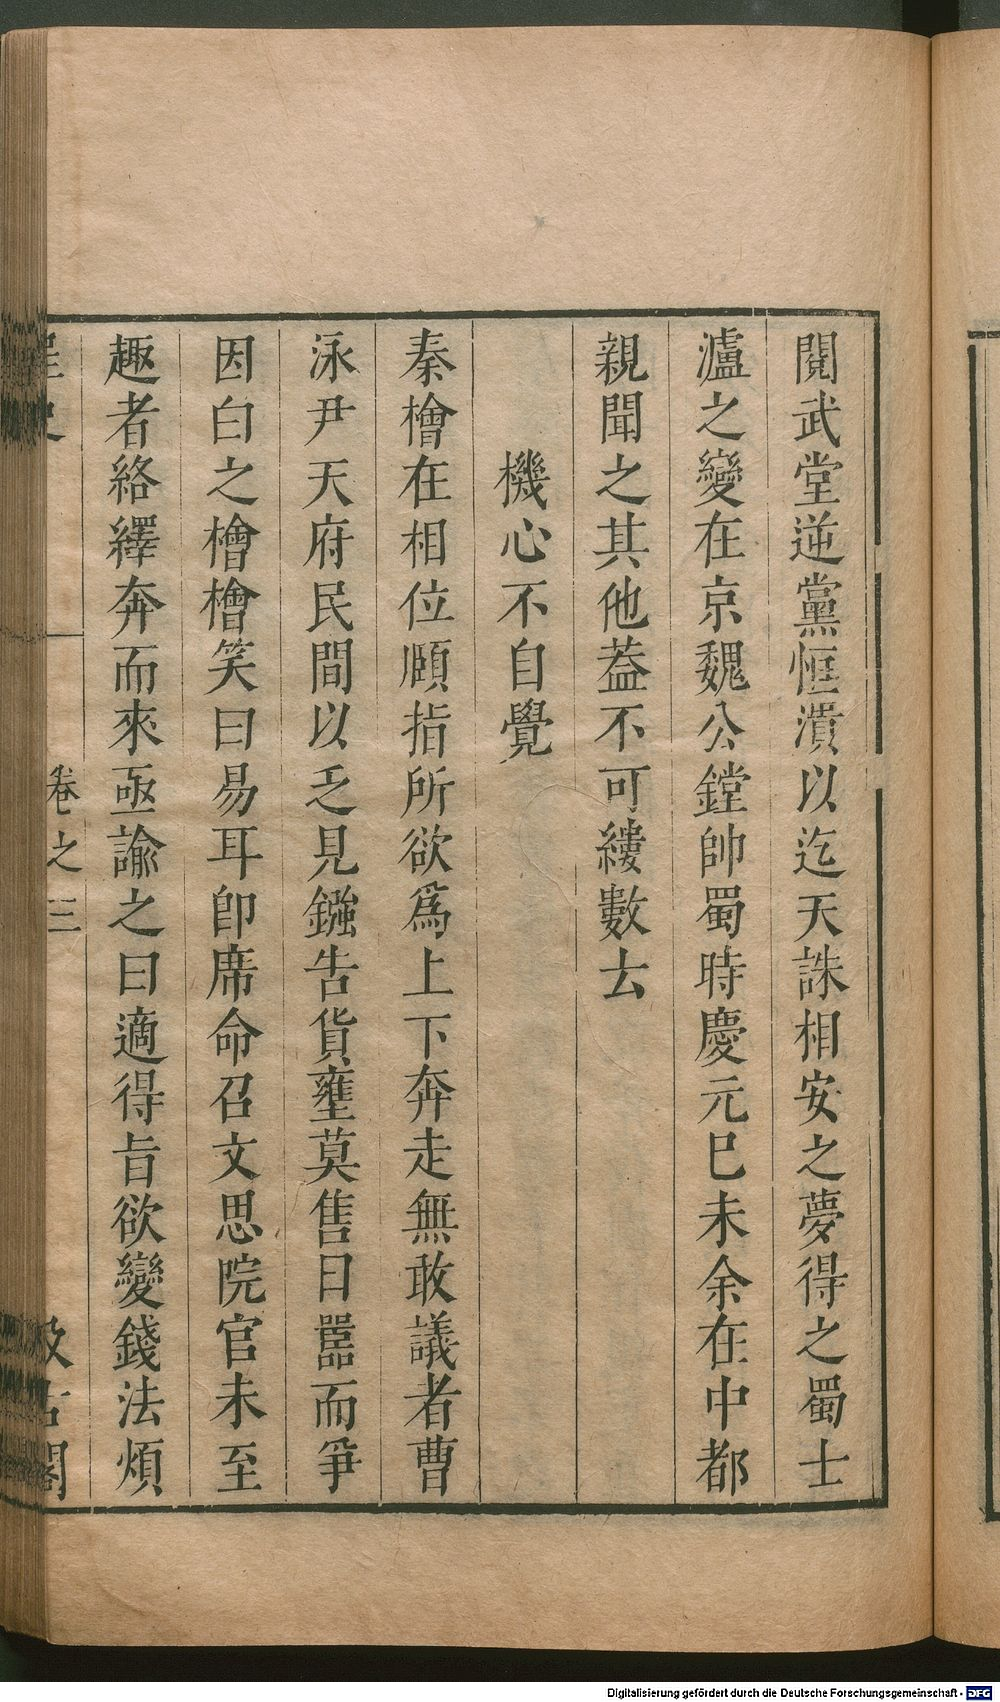 閱武堂逆黨恇潰以迄天誅相安之夢得之蜀士
瀘之變在京魏公鏜帥蜀時慶元巳未余在中都
親聞之其他葢不可縷數去
機心不自覺
秦檜在相位頤指所欲爲上下奔走無敢議者曹
泳尹天府民間以乏見鏹告貨壅莫售日嚚而爭
因白之檜檜笑曰易耳卽席命召文思院官未至
趣者絡繹奔而來亟諭之曰適得旨欲變錢法煩
卷之三
汲古閣
Digitalisierung gefördert durch die Deutsche Forschungsgemeinschaft - DFG